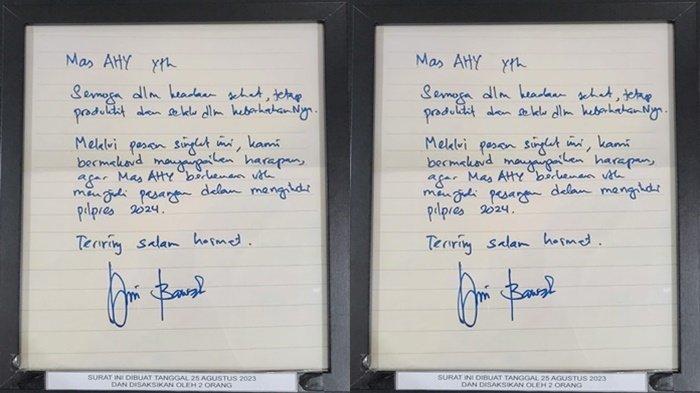 Mas AHY yth
Semoga dlm keadaan sehat, tetap
produktif dan selalu dlm keberkahanNya.
Melalui pesan singkat ini, kami
bermaksud menyampaikan harapan,
agar Mas AHY berkenan utk
menjadi pasangan dalam mengikuti
pilpres 2024.
Teriring salam hormat.
SURAT INI DIBUAT TANGGAL 25 AGUSTUS 2023
DAN DISAKSIKAN OLEH 2 ORANG
Mas AHY yth
Semoga dlm keadaan sehat, tetap
produktif dan selalu dlm keberkahanNya.
Melalui pesan singkat ini, kami
bermaksud menyampaikan harapan,
agar Mas AHY berkenan utk
menjadi pasangan dalam mengikuti
pilpres 2024.
Teriring salam hormat.
SURAT INI DIBUAT TANGGAL 25 AGUSTUS 2023
DAN DISAKSIKAN OLEH 2 ORANG